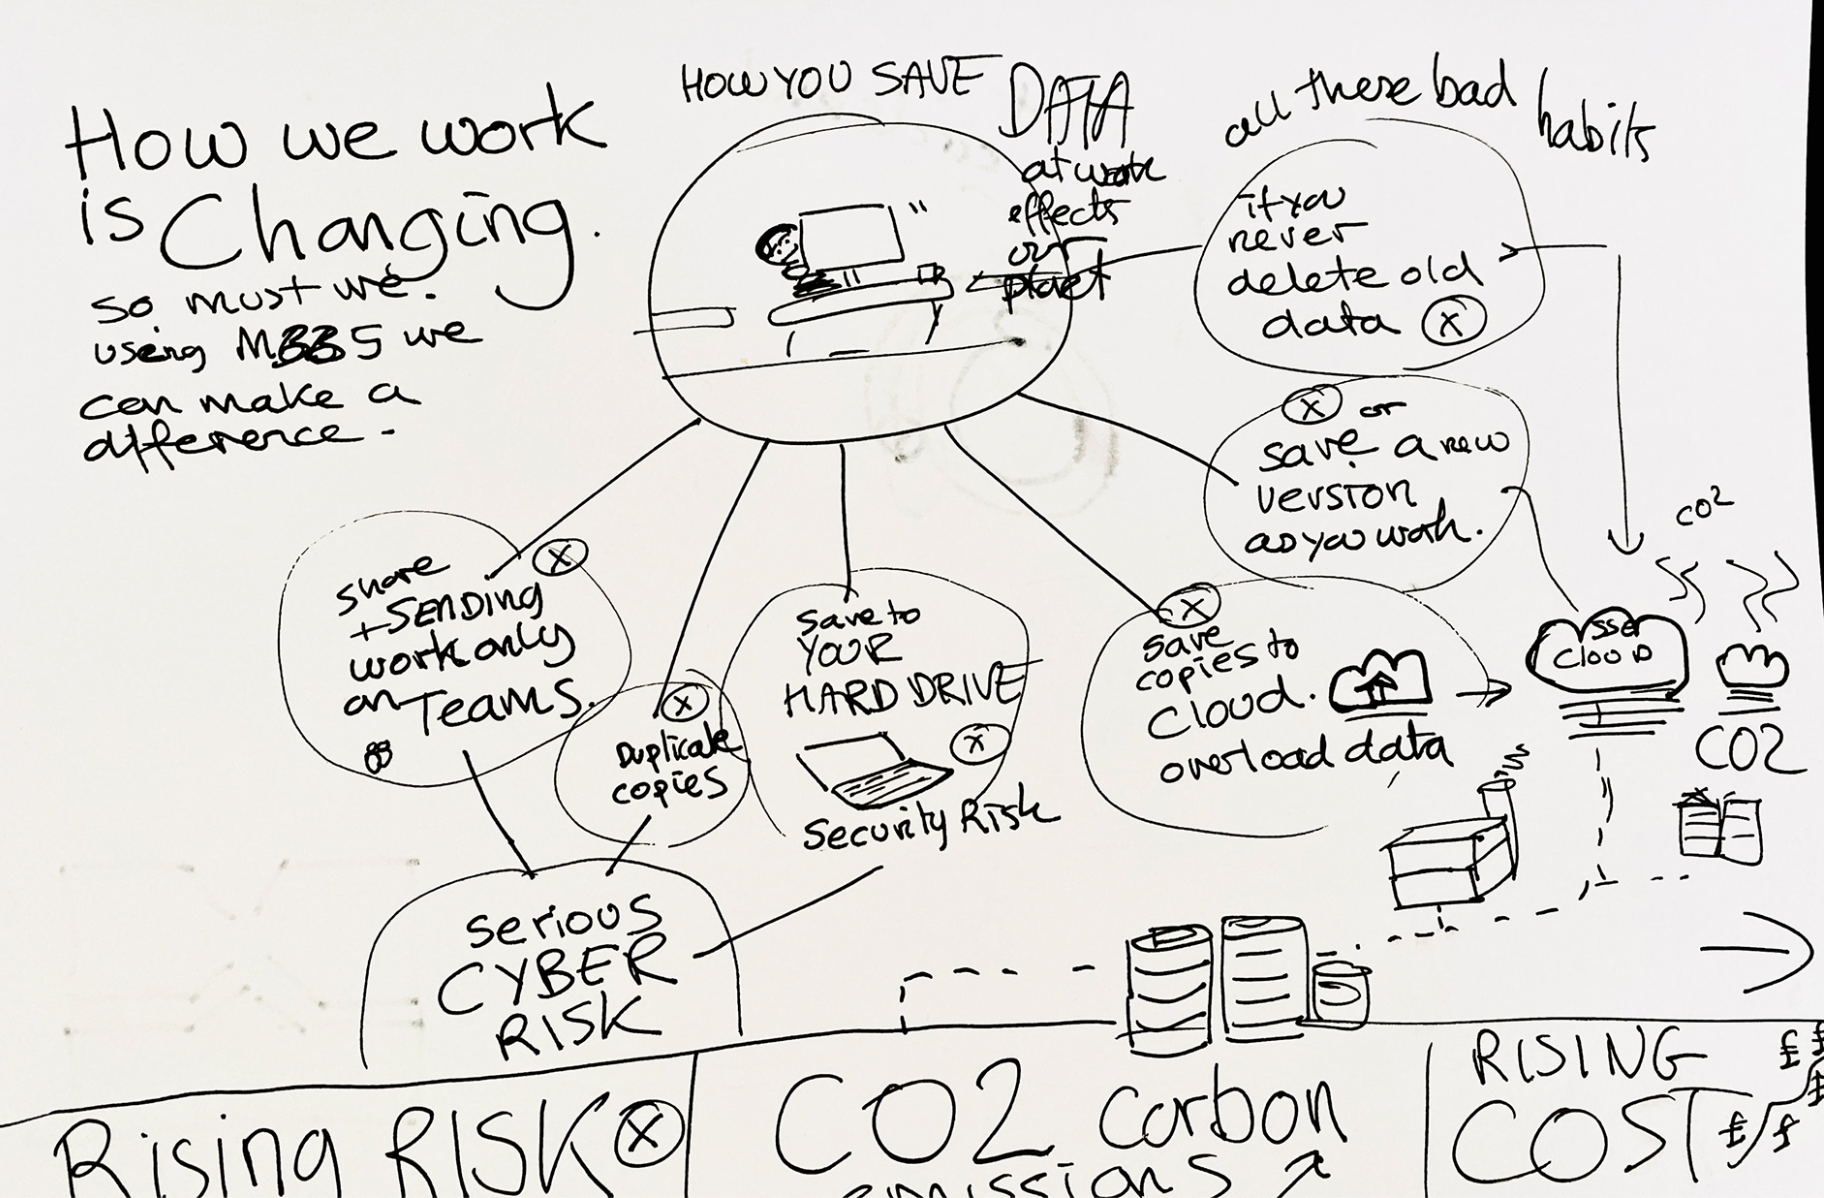 How we work
is Changing.
so must we.
using M335 we
can make a
difference.
HOW YOU SAVE DATA
at work
effects
our
planet
all these bad habits
if you
never
delete old
data X
X or
save a new
version
as you work.
share X
+ SENDING
work only
on Teams.
X
Duplicate
copies
save to
YOUR
HARD DRIVE
X
Security Risk
X
save
copies to
cloud.
overload data
CO2
SSE
CLOUD
CO2
serious
CYBER
RISK
Rising RISK X
CO2 carbon
emissions
RISING
COST
£ £
£
£/£